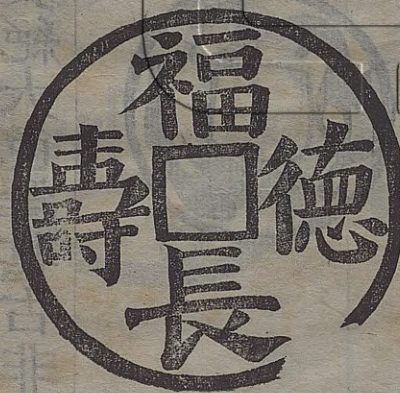 福
徳
長
壽